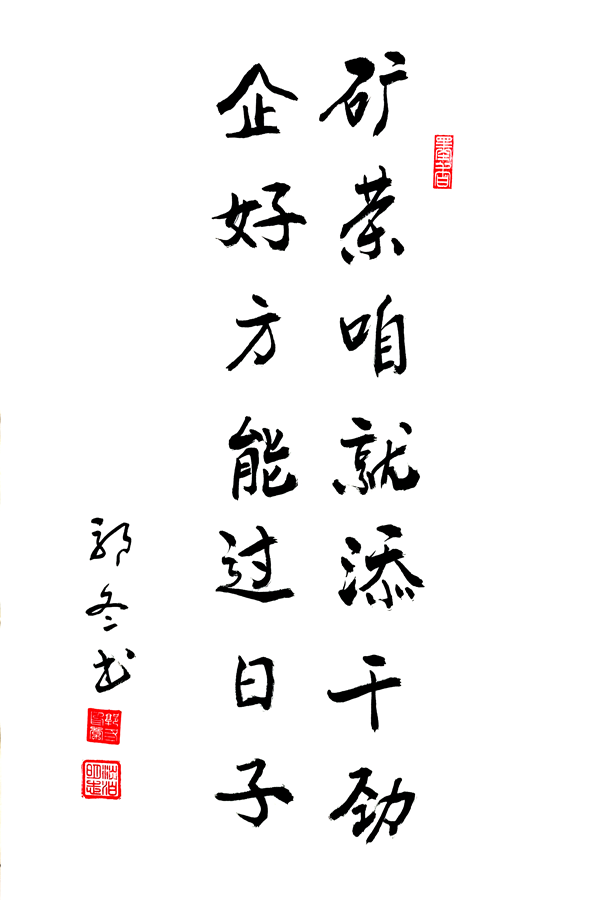 矿荣咱就添干劲
企好方能过日子
郭冬书